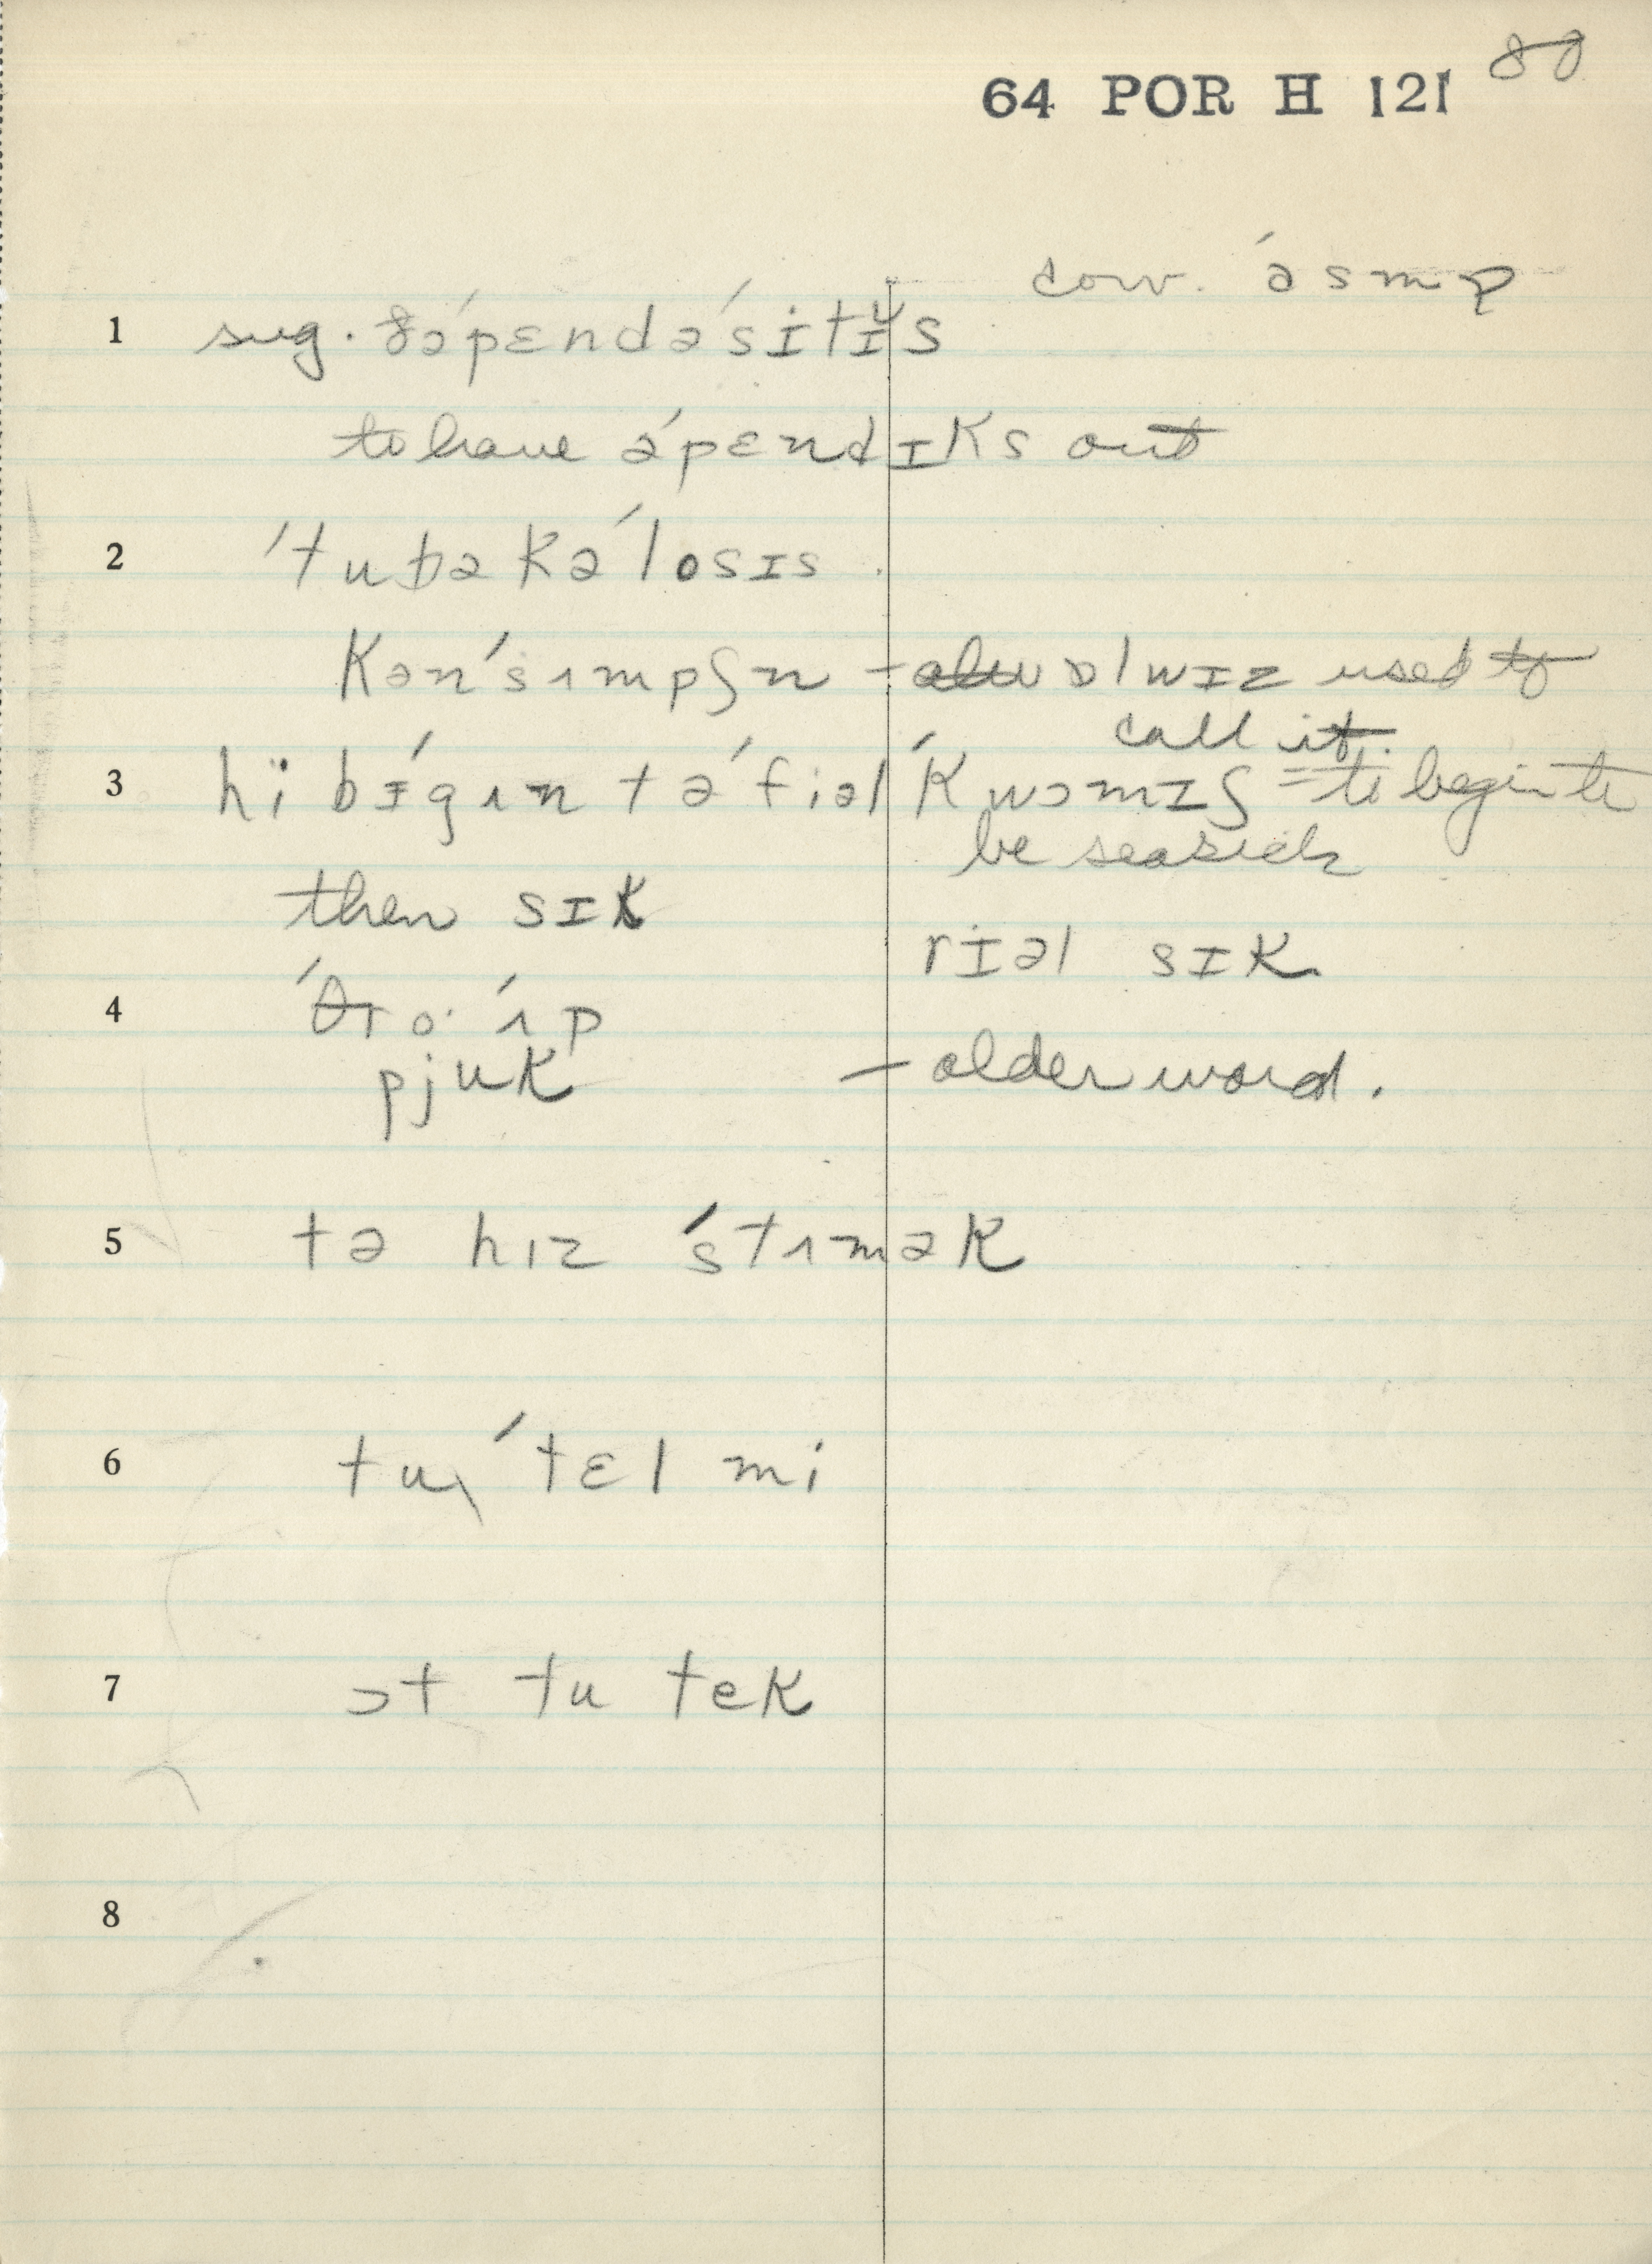 80
64 POR H 121
conv. ə́smə
1 sug. ə́pɛndə́sɪtɪs
to have ə́pɛndɪks out
2 ´tubəkə´losɪs
kən´sɪmpʃn – ɒlwɪz used to
call it.
3 hï bɪ´gɪn tə ´fiəl ´kwɔmɪʃ = to begin to
be seasick
then sɪk
rɪəl sɪk
4 ´θro· ´ʌp
pjuk – older word.
5 tə hɪz ´stʌmək
6 tu ´tɛl mi
7 ɔt tu tek
8